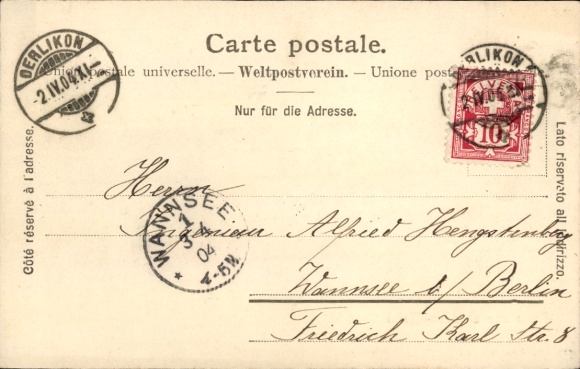 Carte postale.
Union postale universelle. — Weltpostverein. — Unione postale
Nur für die Adresse.
Côté réservé à l'adresse.
Lato riservato all'indirizzo.
OERLIKON
-2.IV.04.XI-
OERLIKON
2.IV.04
HELVETIA
10
WANNSEE
3 4
04
4-5N
Herrn
Ingenieur Alfred Hengstenberg
Wannsee b/ Berlin
Friedrich Karl Str. 8